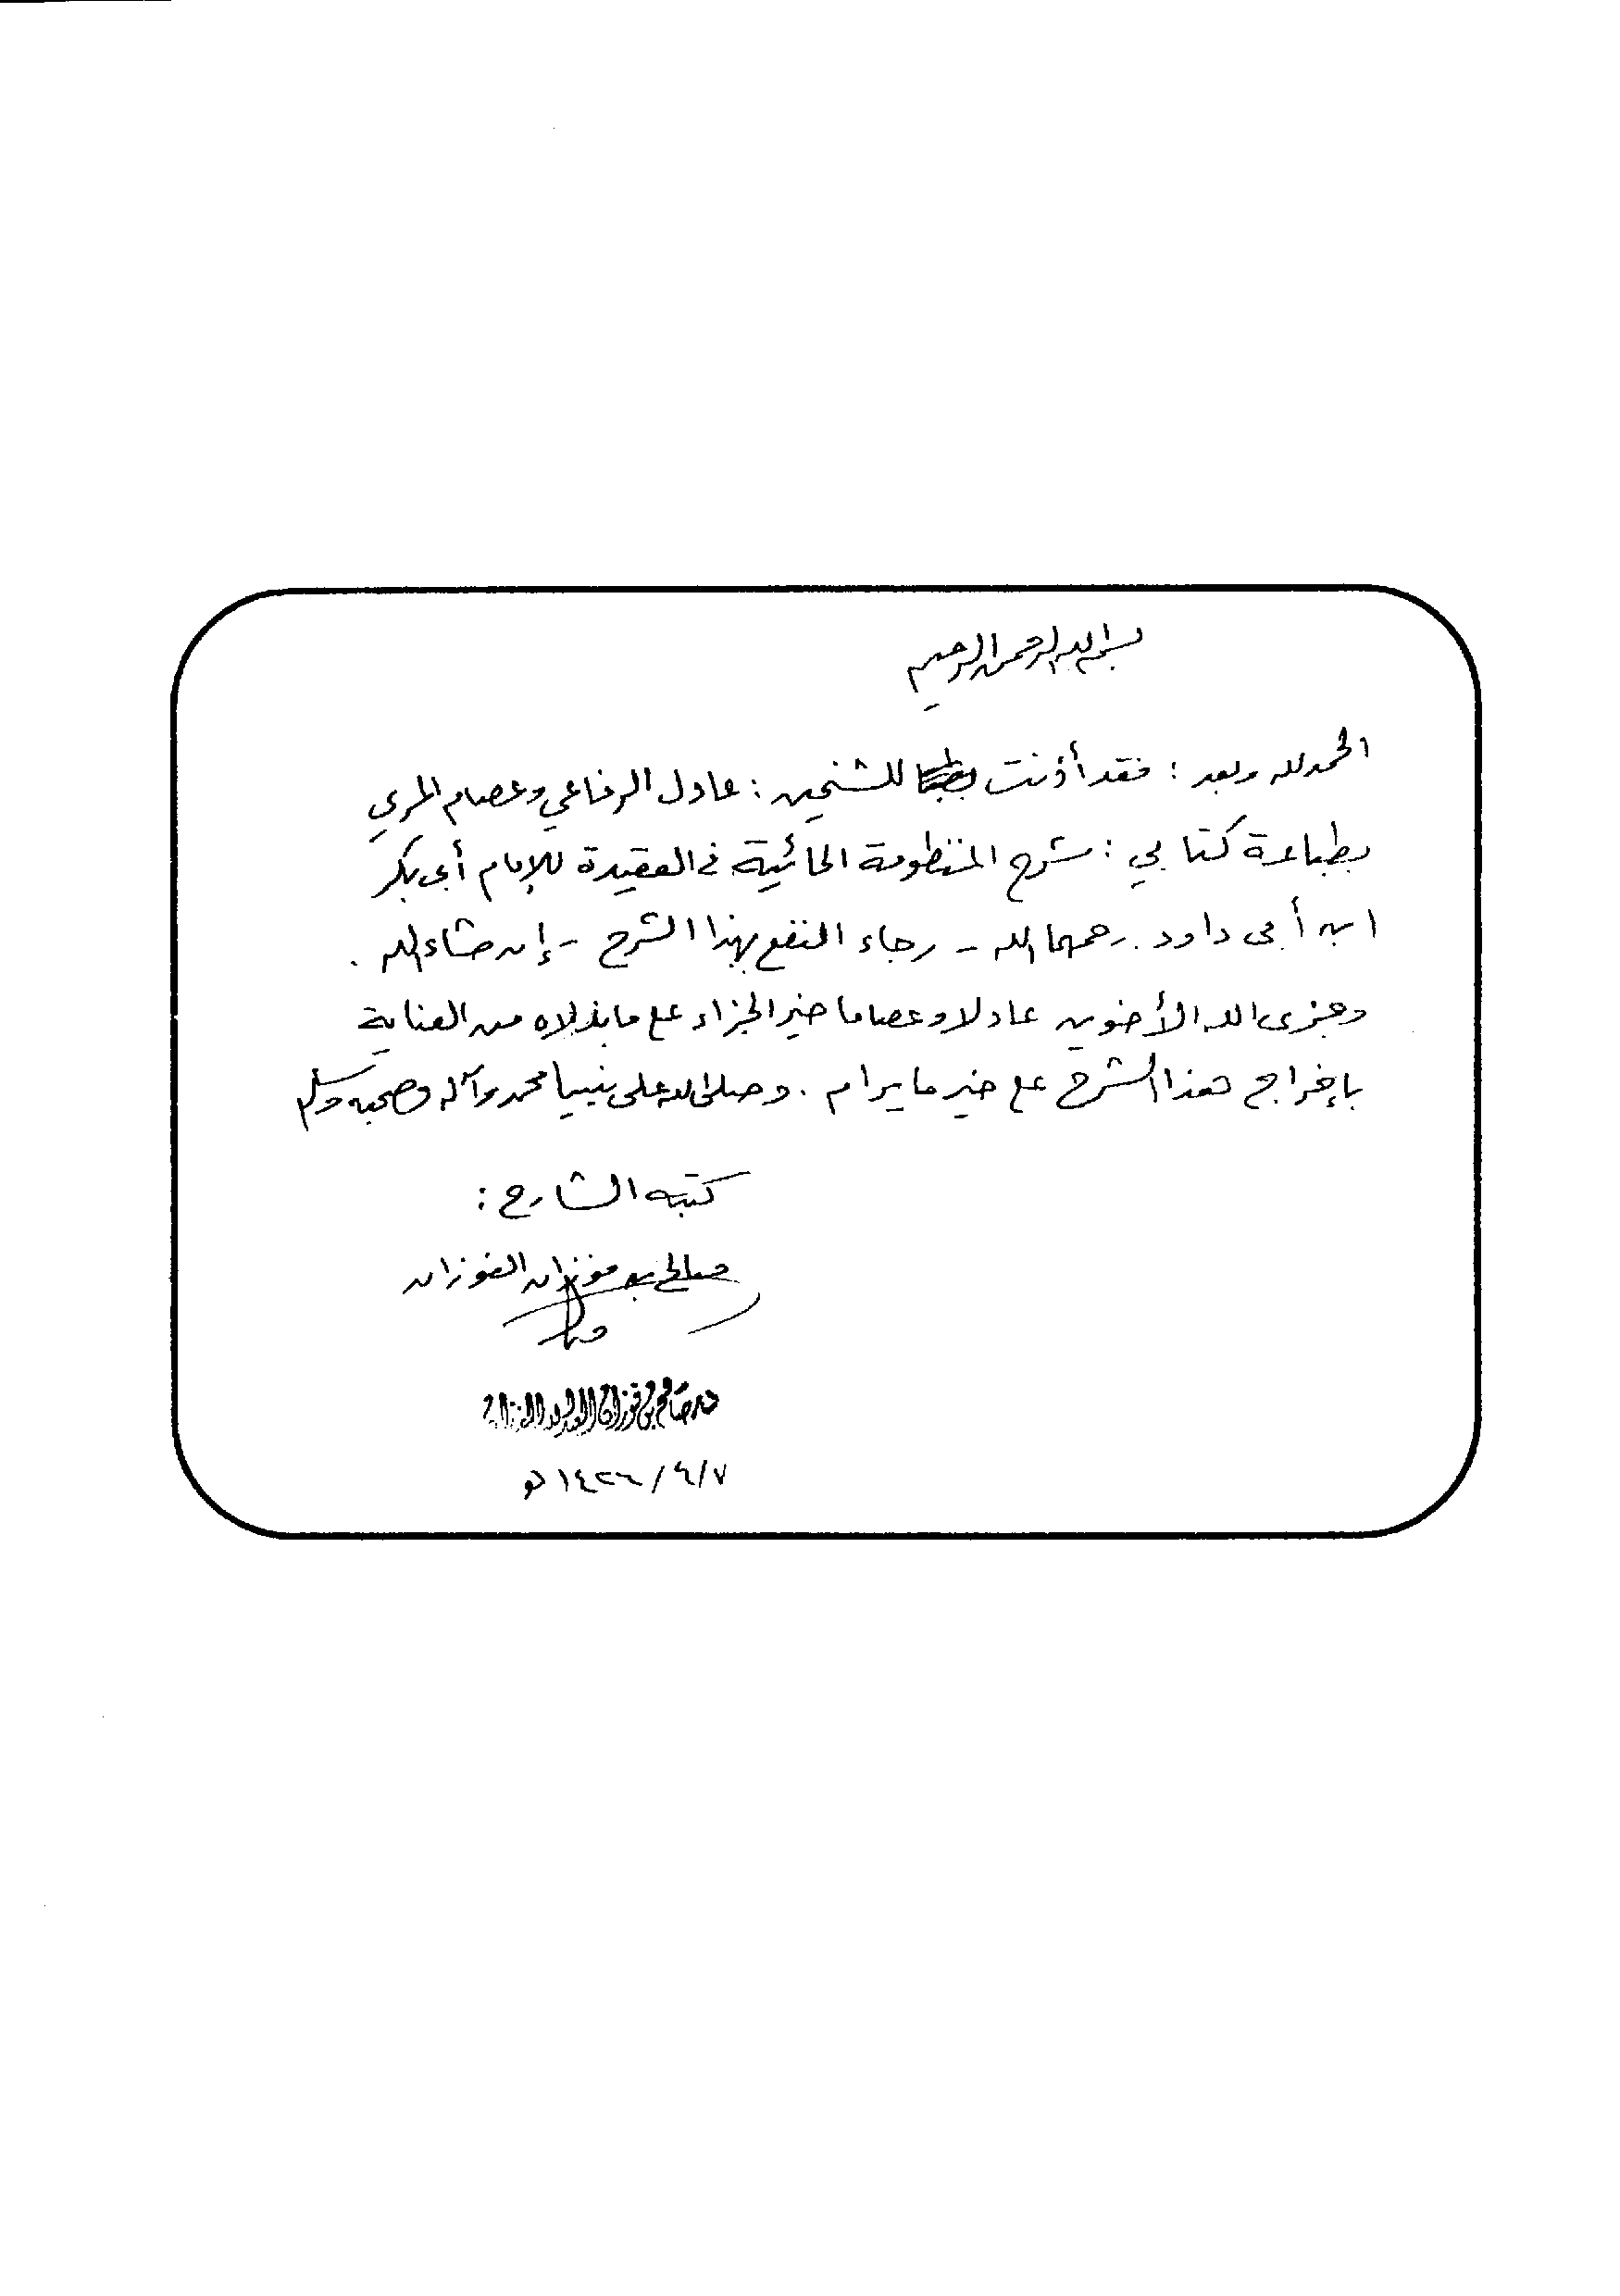 بسم الله الرحمن الرحيم
الحمد لله وبعد : فقد أذنت للشيخين : عادل الرفاعي وعصام المري
بطباعة كتابي : شرح المنظومة الحائية في العقيدة للإمام أبي بكر
ابن أبي داود . رحمهما الله - رجاء النفع بهذا الشرح - إن شاء الله .
وجزى الله الأخوين عادلا وعصاما خير الجزاء على ما بذلاه من العناية
بإخراج هذا الشرح على خير ما يرام . وصلى الله على نبينا محمد وآله وصحبه وسلم
كتبه الشارح :
صالح بن فوزان الفوزان
صالح بن فوزان
١٤٢٦ / ٩/٧ هـ